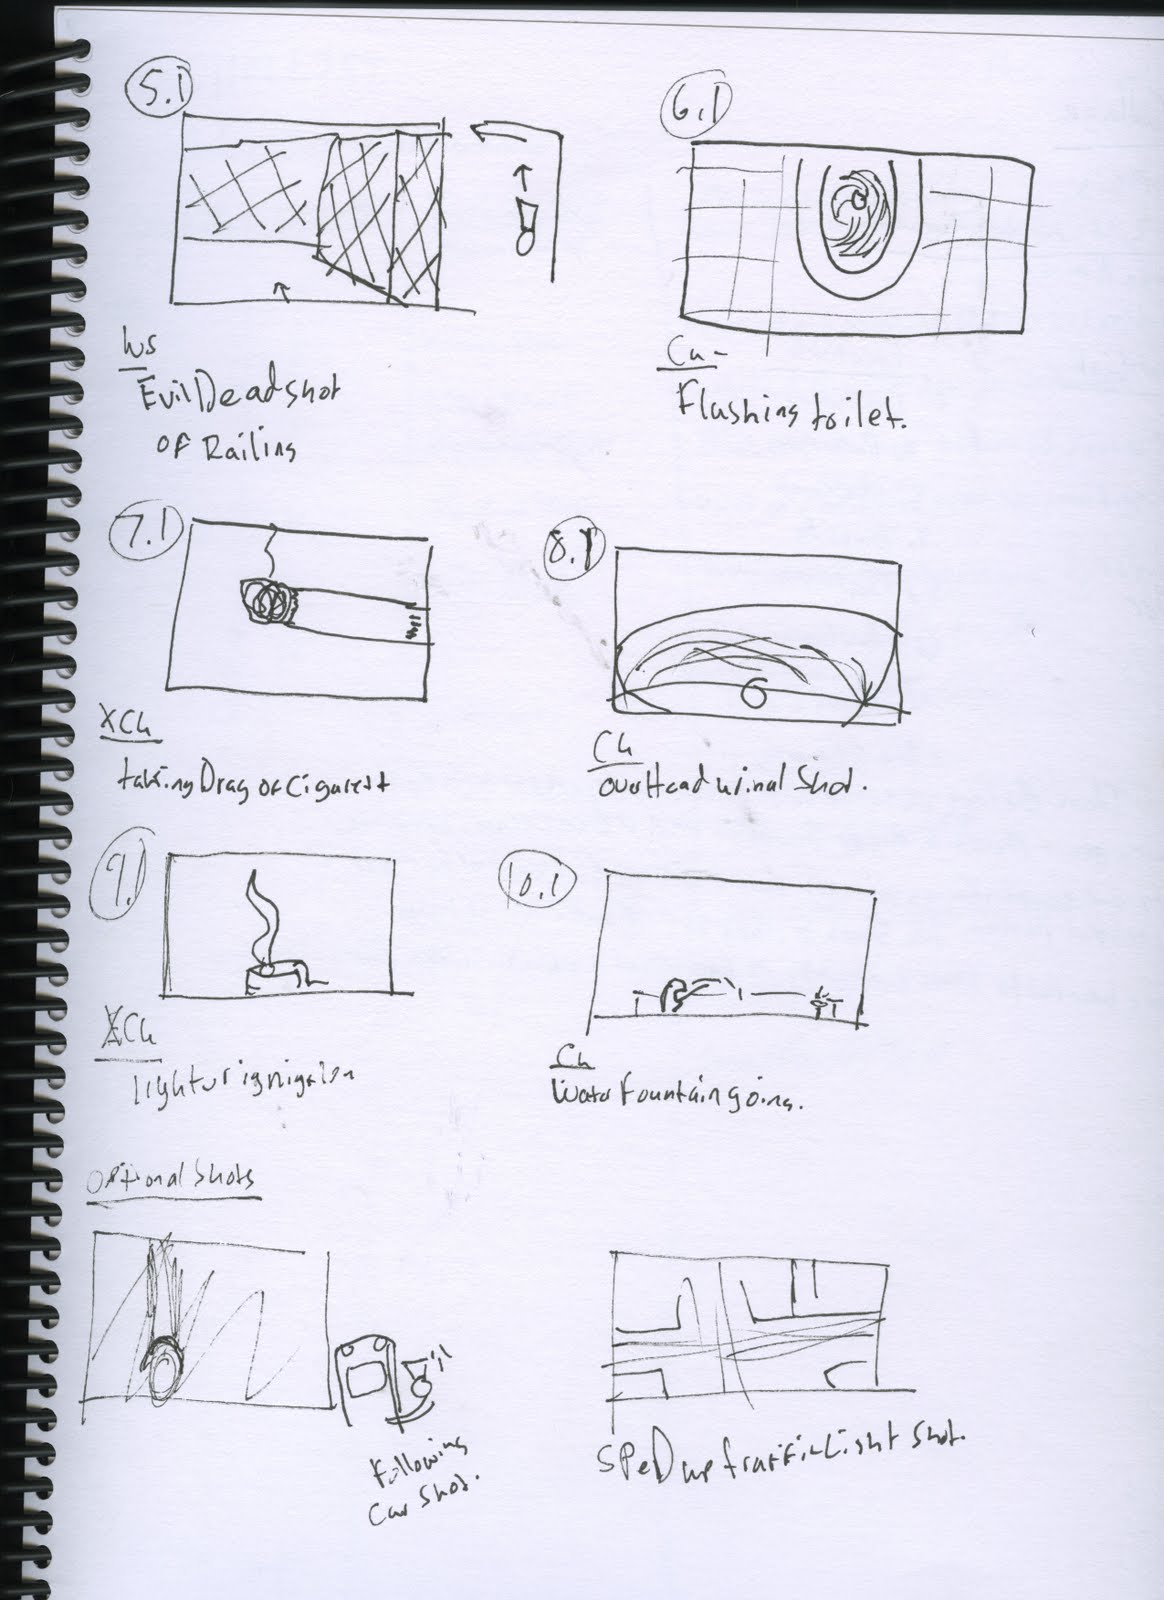 5.1
WS
Evil Dead shot
of Railing
6.1
Cu-
Flashing toilet.
7.1
XCu
taking Drag of Cigarett
8.1
Cu
overHead urinal shot.
9.1
XCu
lightur ignigtion
10.1
Cu
Water Fountain going.
Optional Shots
Following
Car Shot.
SPeD up traffic Light shot.